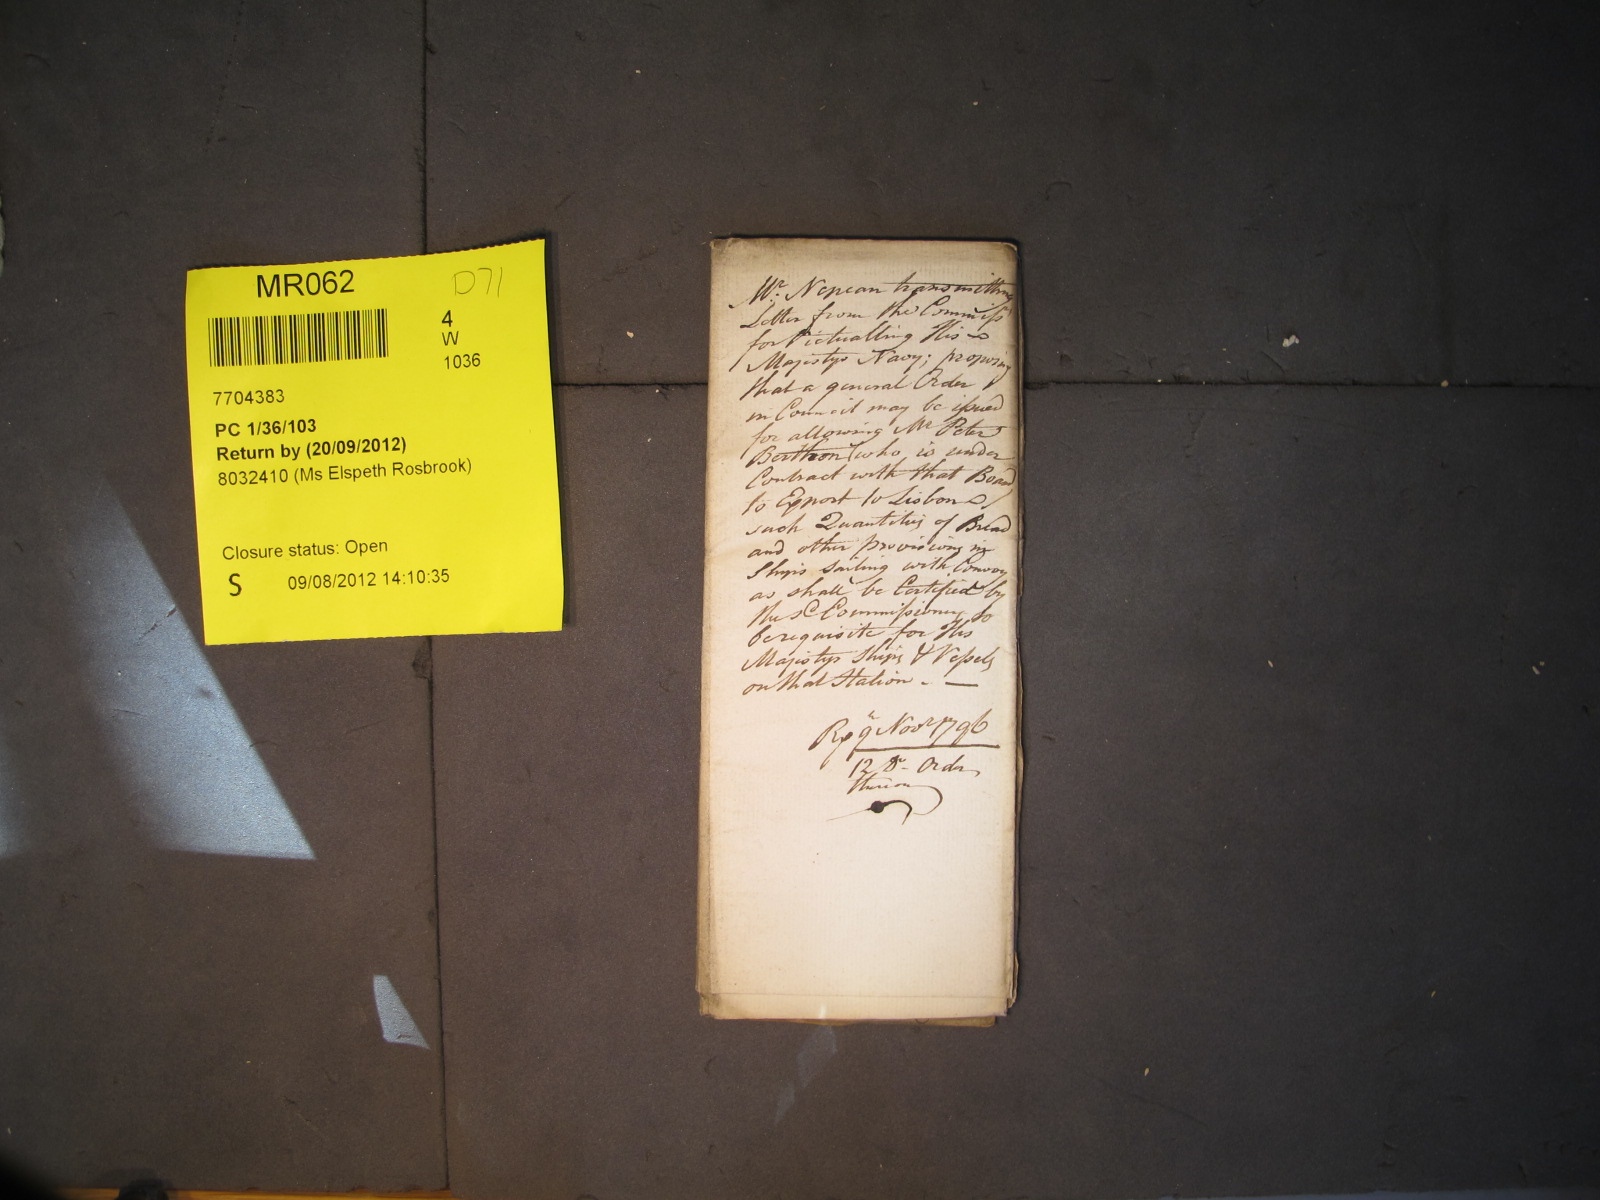 MR062
D71
4
W
1036
7704383
PC 1/36/103
Return by (20/09/2012)
8032410 (Ms Elspeth Rosbrook)
Closure status: Open
S 09/08/2012 14:10:35
Mr. Nepean transmitting
Letter from the Commiss
for Victualling His
Majestys Navy; proposing
that a general Order
in Council may be issued
for allowing Mr Peter
Berthon (who is under
Contract with that Board
to Export to Lisbon)
such Quantities of Bread
and other provisions in
Ships sailing with Convoy
as shall be Certified by
the sd Commissioners to
be requisite for His
Majestys Ships & Vessels
on that Station. —
9th Novr 1796
12 Do- Order
thereon